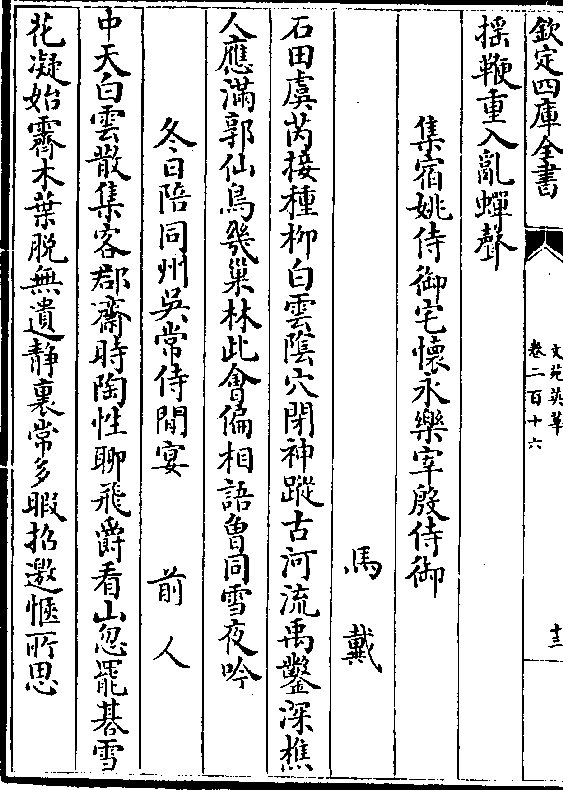 欽定四庫全書
文苑英華
卷二百十六
十三
揺鞭重入亂蟬聲
集宿姚侍御宅懐永樂宰殷侍御
馬戴
石田虞芮接種柳白雲隂穴閉神蹤古河流禹鑿深樵
人應滿郭仙鳥幾巢林此會偏相語曾同雪夜吟
冬日陪同州吳常侍閒宴 前人
中天白雲散集客郡齋時陶性聊飛爵看山忽罷棊雪
花凝始霽木葉脱無遺静裏常多暇招邀愜所思